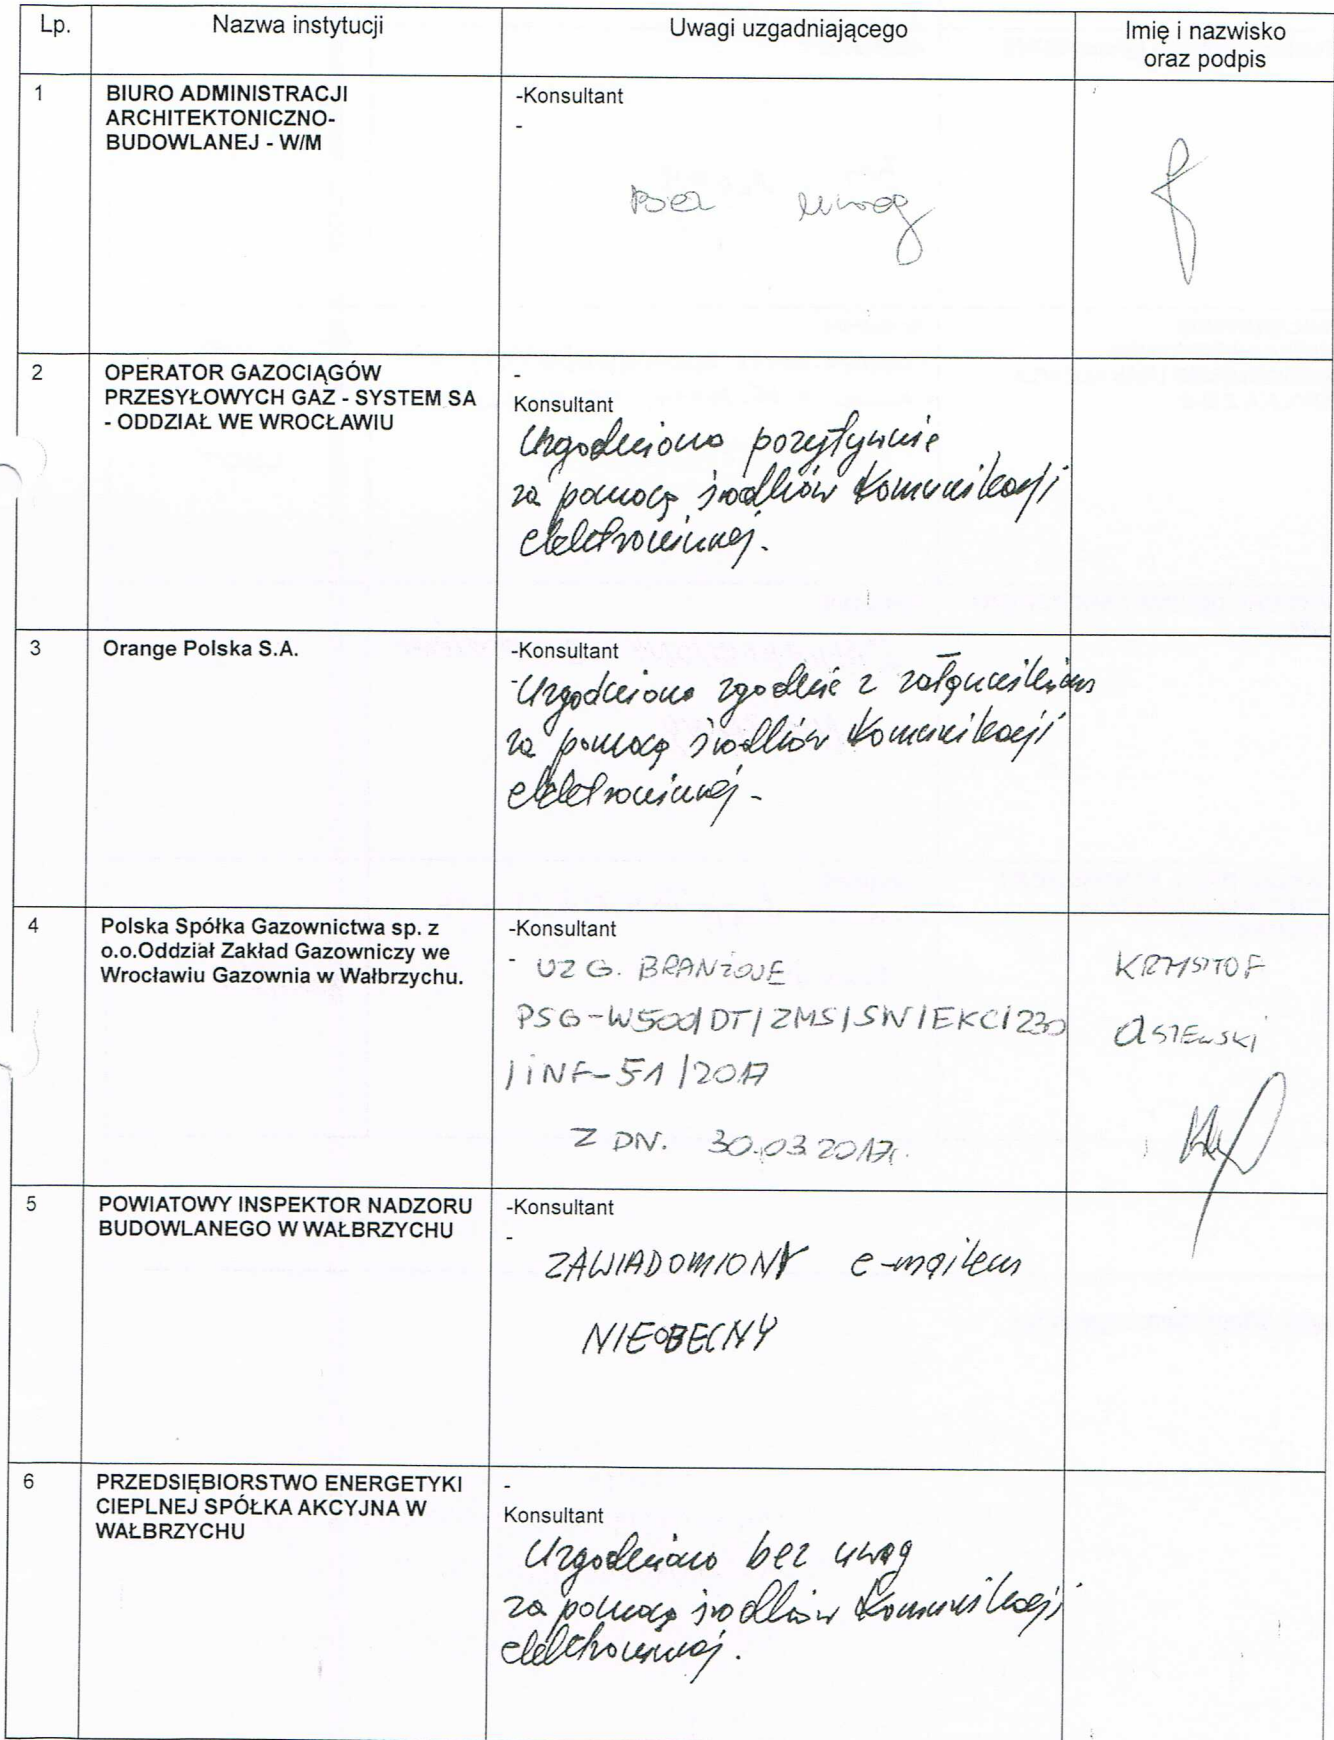 Lp.
Nazwa instytucji
Uwagi uzgadniającego
Imię i nazwisko
oraz podpis
1
BIURO ADMINISTRACJI
ARCHITEKTONICZNO-
BUDOWLANEJ - W/M
-Konsultant
-
Bez uwag
2
OPERATOR GAZOCIĄGÓW
PRZESYŁOWYCH GAZ - SYSTEM SA
- ODDZIAŁ WE WROCŁAWIU
-
Konsultant
Uzgodniono pozytywnie
za pomocą środków komunikacji
elektronicznej.
3
Orange Polska S.A.
-Konsultant
- Uzgodniono zgodnie z załącznikiem
za pomocą środków komunikacji
elektronicznej -
4
Polska Spółka Gazownictwa sp. z
o.o.Oddział Zakład Gazowniczy we
Wrocławiu Gazownia w Wałbrzychu.
-Konsultant
- UZG. BRANŻOWE
PSG-W500/DT/ZMS/SW/EKC/230
/INF-51/2017
Z DN. 30.03.2017r.
KRZYSZTOF
5
POWIATOWY INSPEKTOR NADZORU
BUDOWLANEGO W WAŁBRZYCHU
-Konsultant
-
ZAWIADOMIONY e-mailem
NIEOBECNY
6
PRZEDSIĘBIORSTWO ENERGETYKI
CIEPLNEJ SPÓŁKA AKCYJNA W
WAŁBRZYCHU
-
Konsultant
Uzgodniono bez uwag
za pomocą środków komunikacji
elektronicznej.